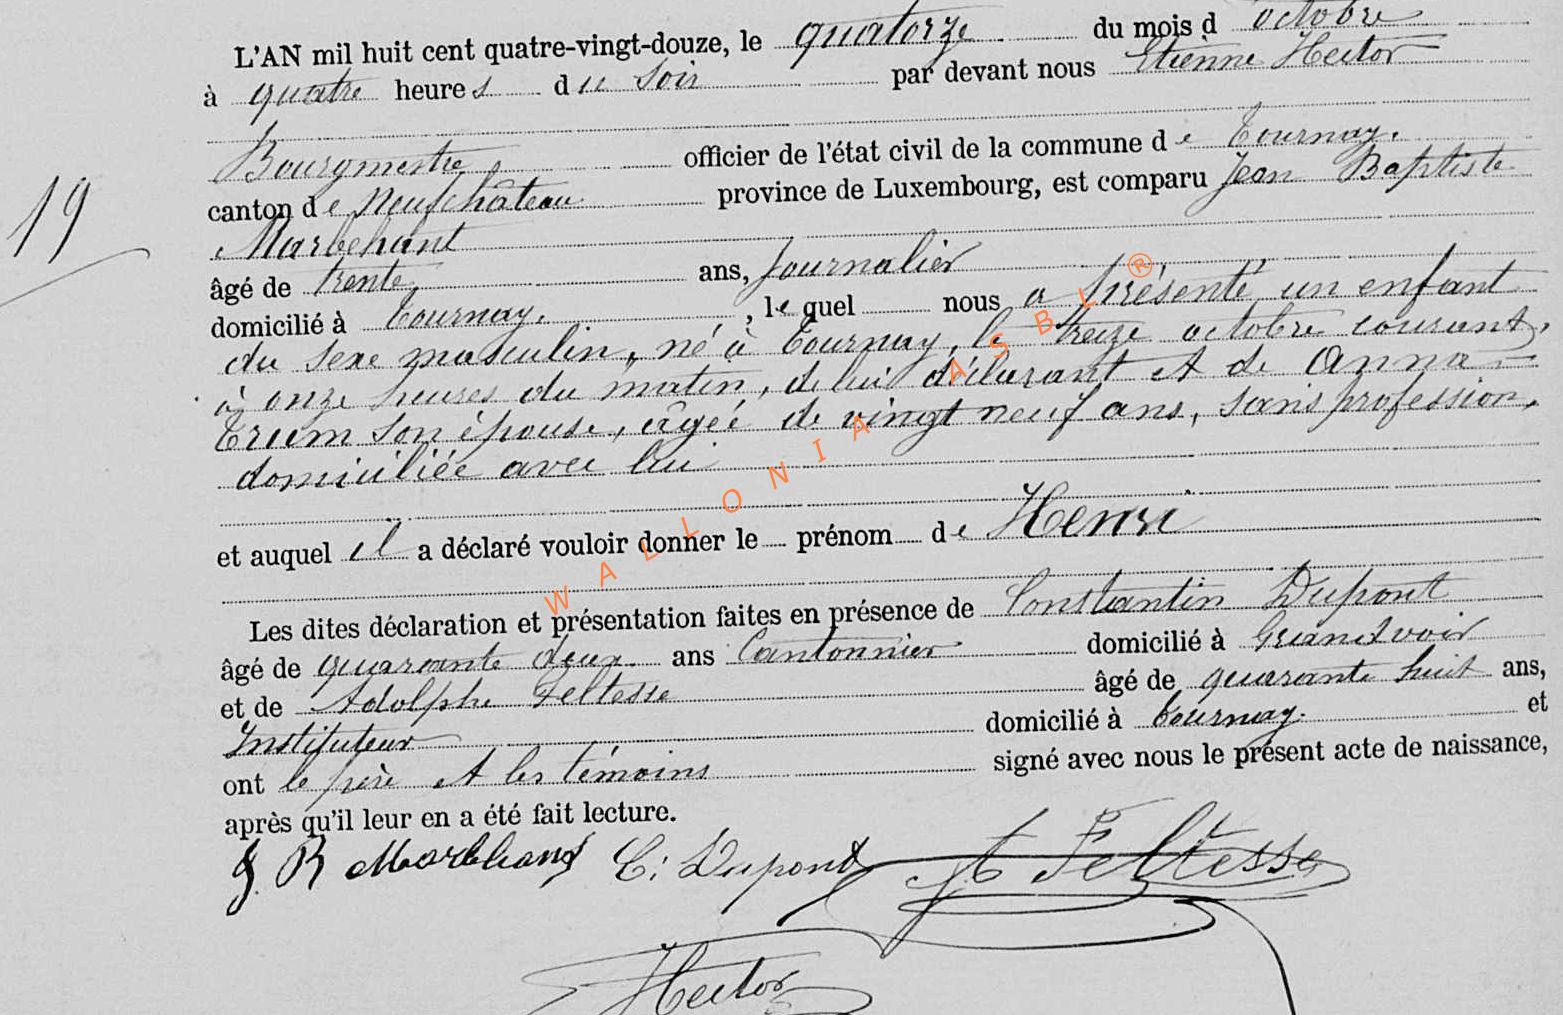 L'AN mil huit cent quatre-vingt-douze, le quatorze du mois d octobre
à quatre heures du soir par devant nous Etienne Hector
Bourgmestre, officier de l'état civil de la commune de Tournay.
canton de Neufchâteau province de Luxembourg, est comparu Jean Baptiste
Marbehant
âgé de trente ans, journalier
domicilié à Tournay, lequel nous a présenté un enfant
19
du sexe masculin, né à Tournay, le treize octobre courant,
à onze heures du matin, de lui déclarant et de Anna
Trum son épouse, âgée de vingt neuf ans, sans profession,
domiciliée avec lui
et auquel il a déclaré vouloir donner le prénom de Henri
Les dites déclaration et présentation faites en présence de Constantin Dupont
âgé de quarante deux ans Cantonnier domicilié à Grandvoir
et de Adolphe Feltesse âgé de quarante huit ans,
Instituteur domicilié à Tournay. et
ont le père et les témoins signé avec nous le présent acte de naissance,
après qu'il leur en a été fait lecture.
J. B Marbehant C. Dupont A Feltesse
Hector
WALLONIA ASBL ®